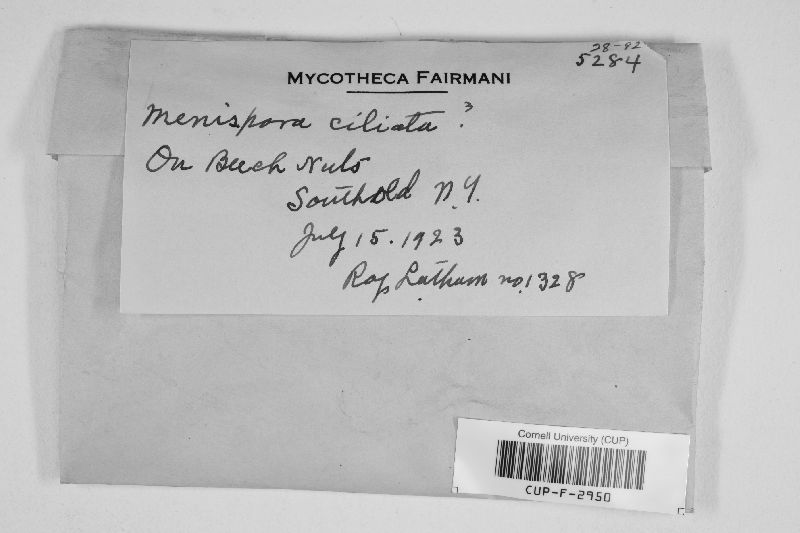 28-92
5284
MYCOTHECA FAIRMANI
Menispora ciliata ?
On Beech Nuts
Southold N.Y.
July 15. 1923
Roy Latham no. 1328
Cornell University (CUP)
CUP-F-2950